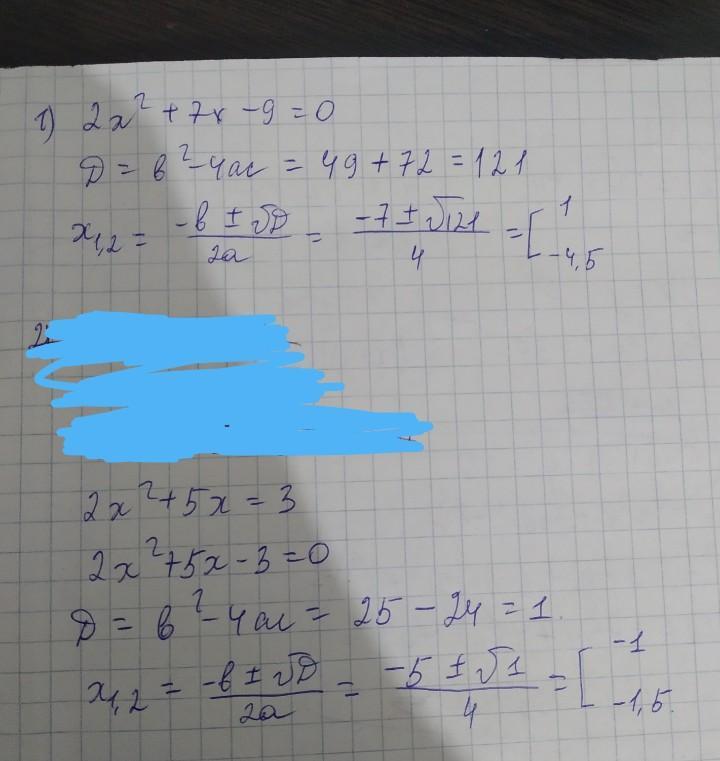 1) 2x² + 7x - 9 = 0
D = b² - 4ac = 49 + 72 = 121
x₁,₂ = (-b ± √D)/2a = (-7 ± √121)/4 = [ 1 -4,5
2
2x² + 5x = 3
2x² + 5x - 3 = 0
D = b² - 4ac = 25 - 24 = 1.
x₁,₂ = (-b ± √D)/2a = (-5 ± √1)/4 = [ -1 -1,5.